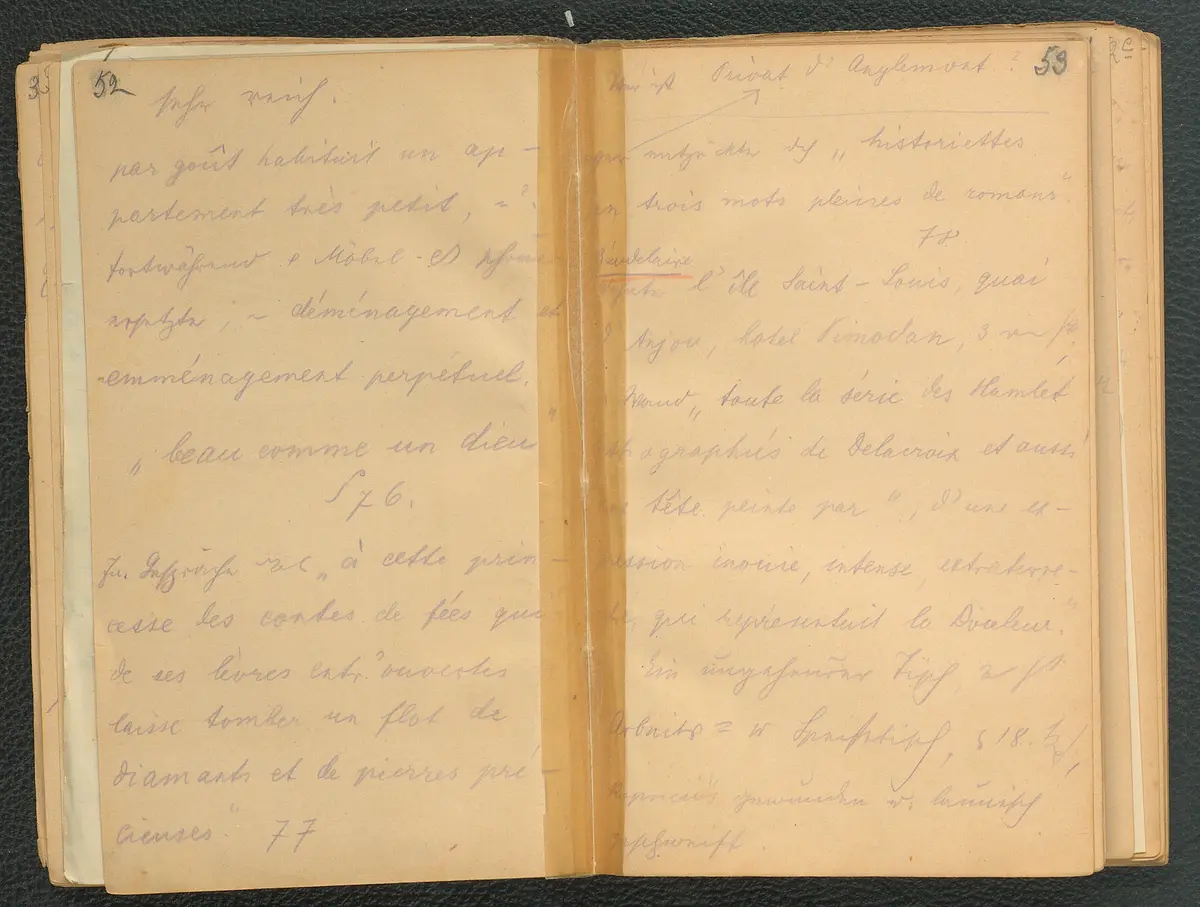 52
sehr reich.
par goût habituit un ap-
partement très petit,
fortwährend Möbel
ersetzte, déménagement et
emménagement perpétuel.
„beau comme un dieu"
S 76.
Gespräche „à cette prin-
cesse des contes de fées qui
de ses lèvres entr'ouvertes
laisse tomber un flot de
diamants et de pierres pré-
cieuses". 77
53
Wer ist Privat d'Anglemont?
entzückte dch „historiettes
en trois mots pleines de romans"
78
Baudelaire
l'île Saint-Louis, quai
d'Anjou, hotel Pimodan, 3
Wand „toute la série des Hamlet
lithographiés de Delacroix et aussi
une tête peinte par ", d'une ex-
pression inouie, intense, extraterre-
stre, qui représentait la Douleur."
Ein ungeheurer Tisch,
Arbeits= Speisetisch, 18.
gewunden launisch
geschweift.